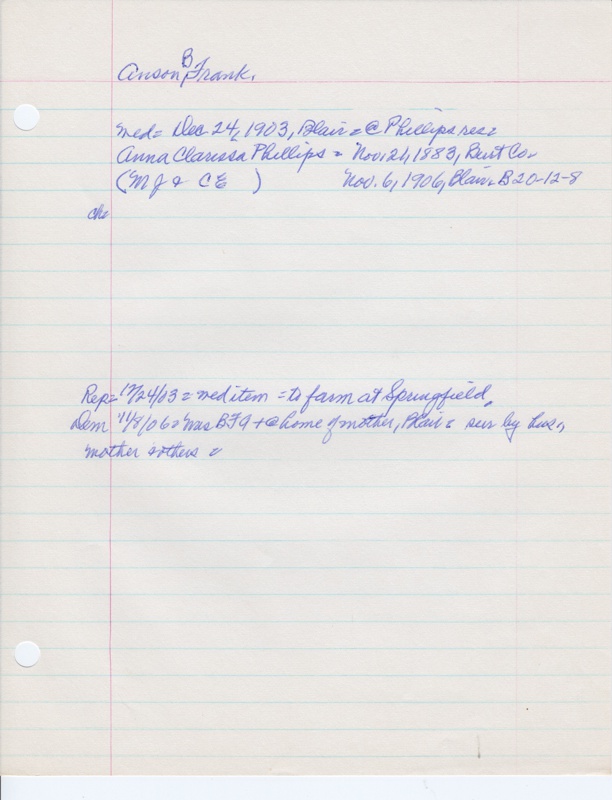 Anson B Frank.
wed= Dec. 24, 1903, Blair = @ Phillips res=
Anna Clarissa Phillips = Nov. 21, 1883, Burt Co-
(M J & C E ) Nov. 6, 1906, Blair- B 20-12-8
ch=
Rep= 12/24/03 = wed item = to farm at Springfield,
Dem 11/8/06= Mrs B F A + @ home of mother, Blair = sur by hus-,
mother & others =